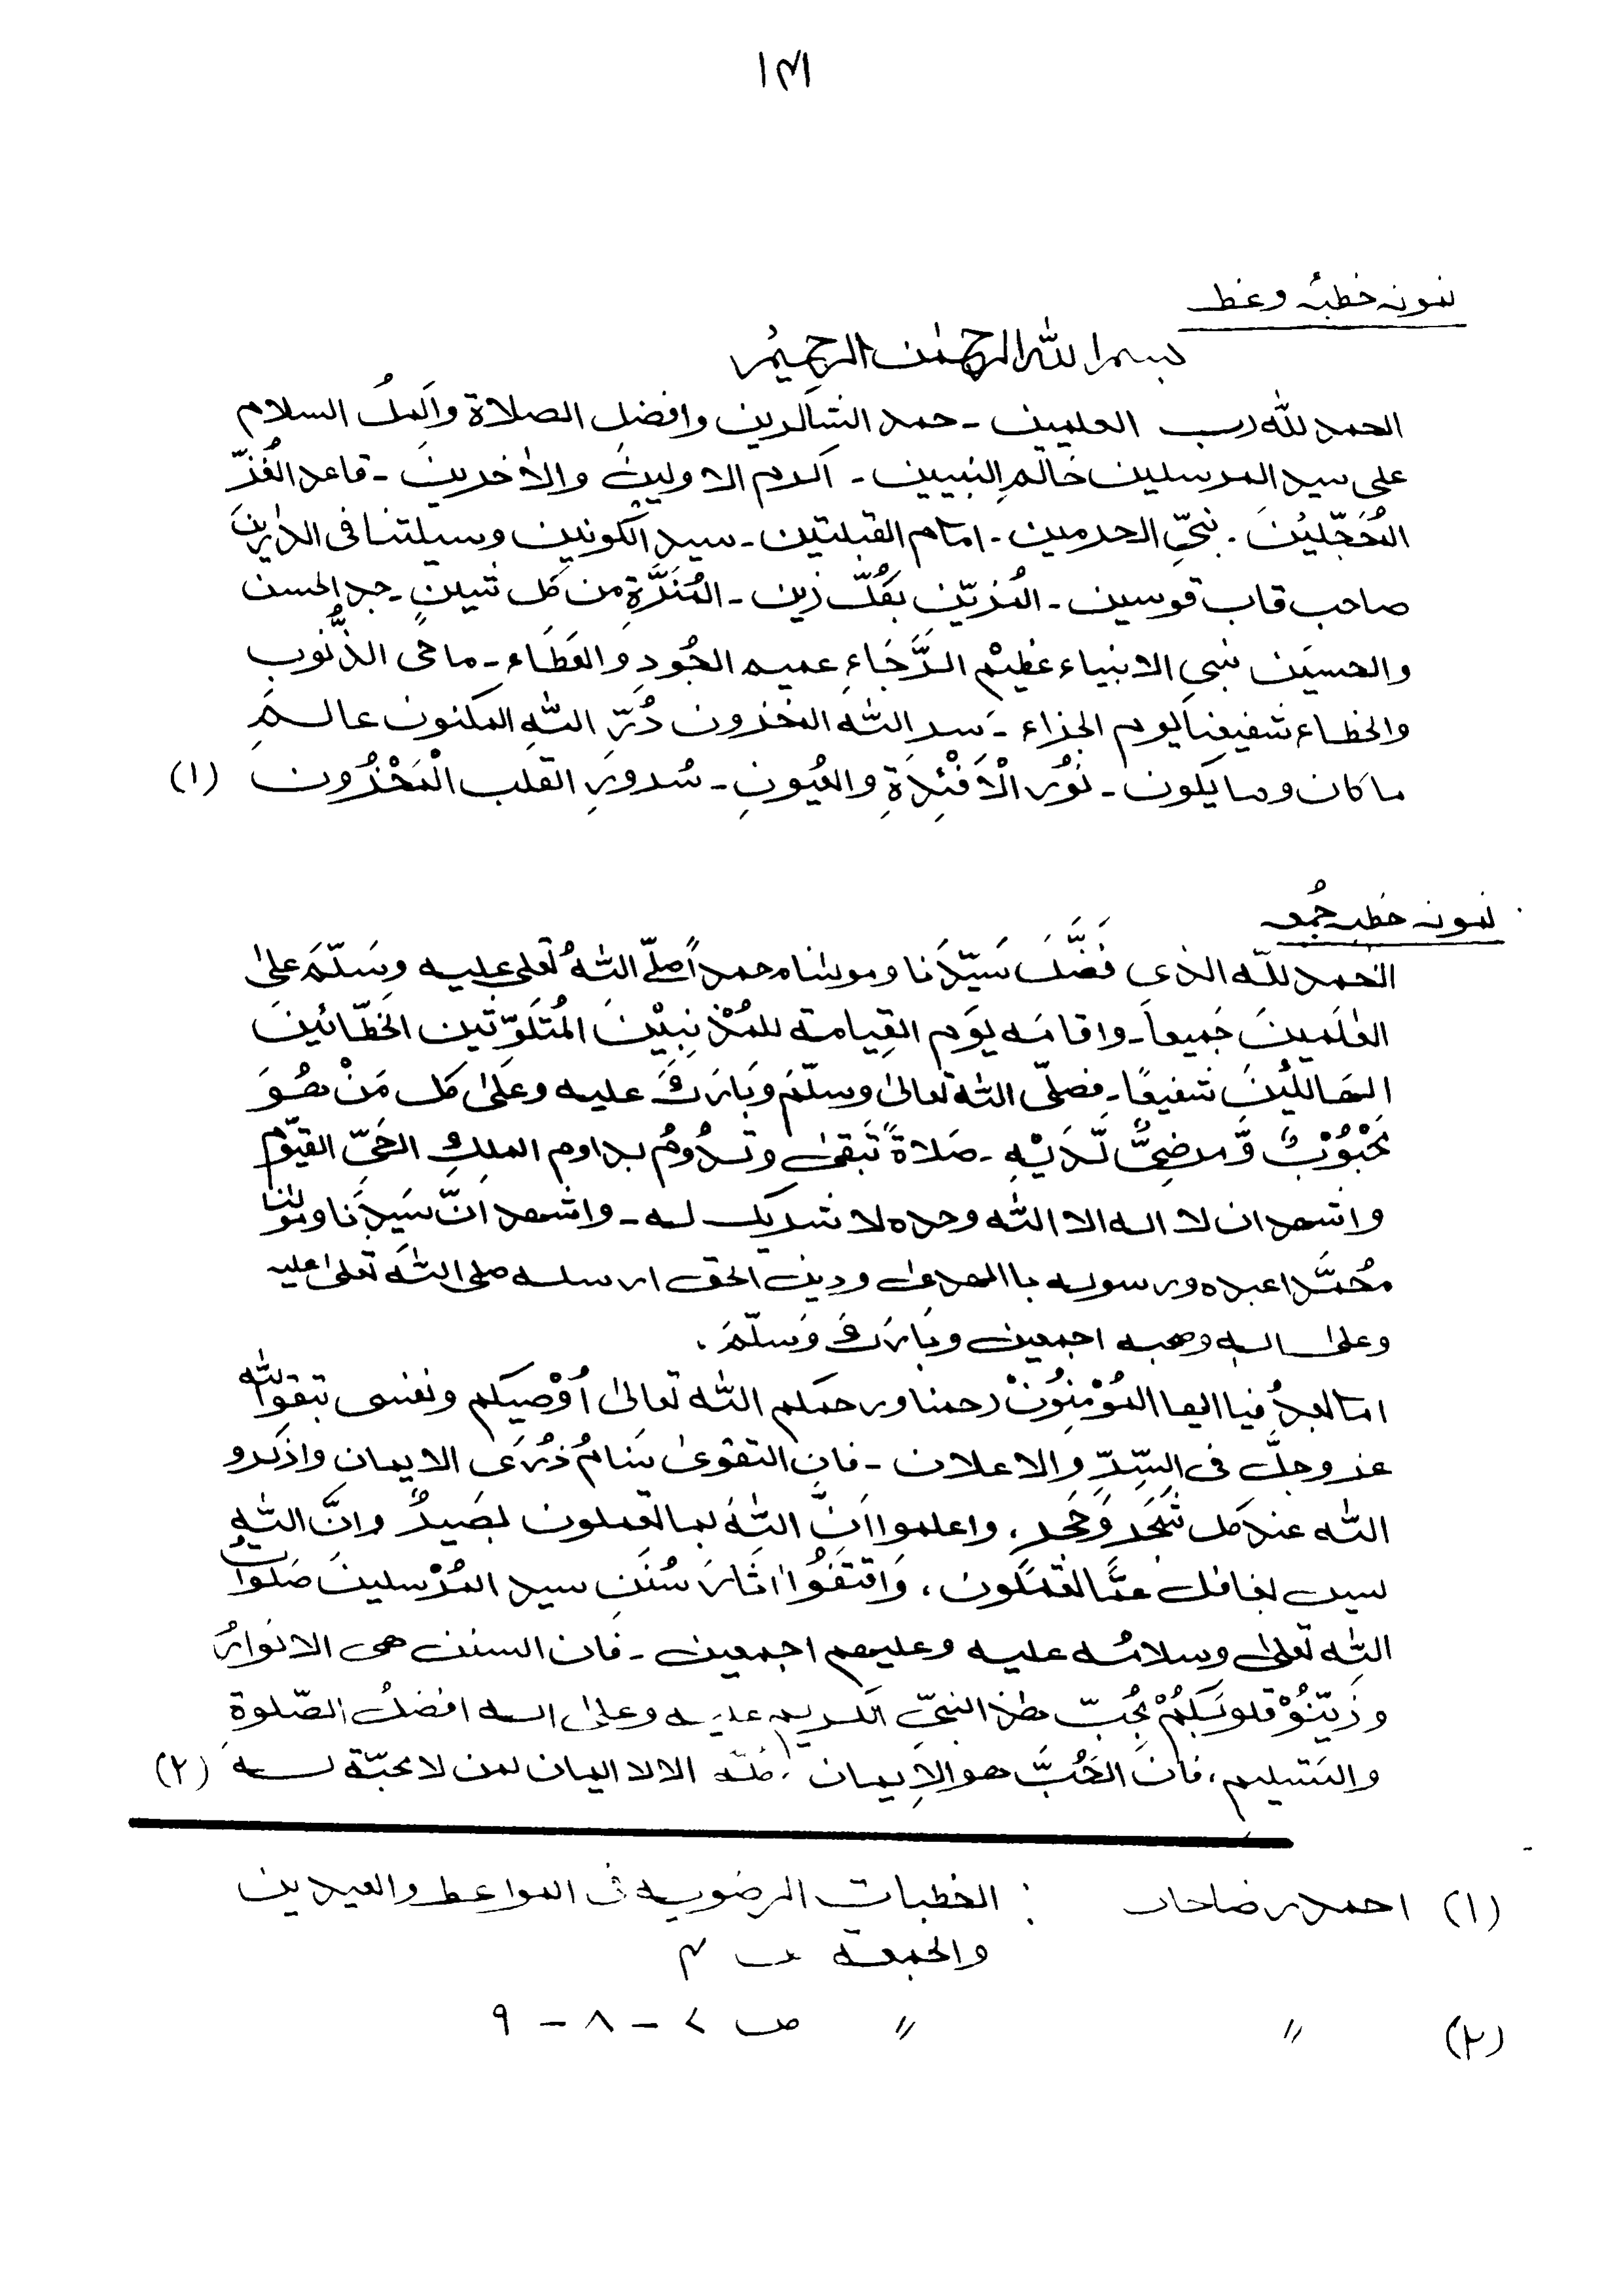 ۱۴۱
نمونہ خطبۂ وعظ
بسم الله الرحمٰن الرحيم
الحمد لله رب العلمين ـ حمد الشاكرين وافضل الصلاة واكملُ السلام
على سيد المرسلين خاتمِ النبيين ـ اكرم الاولين والاٰخرين ـ قاعد الغُرّ
المُحَجَّلِيْنَ ـ نبيِّ الحرمين ـ امام القبلتين ـ سيدِ الكونين وسيلتنا فى الدارين
صاحب قاب قوسين ـ المُزيّن بكُلّ زين ـ المُنَزَّةِ من كل شين ـ جد الحسن
والحسين نبيِ الانبياء عظيْم الرَّجَاءِ عميم الجُودِ والعَطَاءِ ـ ماحى الذُّنُوب
والخطاء شفيعنا يوم الجزاء ـ سر اللّٰه المخزون دُرِّ اللّٰهِ المكنون عالمِ
ما كان وما يكون ـ نُوْرِ الْاَفْئِدَةِ والعُيُونِ ـ سُرورِ القلب الْمَحْزُون (۱)
نمونہ خطبہ جُمعہ
الحمد للّٰه الذى فَضَّلَ سَيِّدَنا ومولٰنا محمداً صلّے اللّٰهُ تعلى عليه وسَلّمَ علىٰ
العٰلَمِينَ جَميعاً ـ واقامه يوَم القِيامة للمُذْنِبِيْنَ المُتَلَوِّثين الخَطّائينَ
الهَالِكِيْنَ شفيعًا ـ فصلّى اللّٰه تعالىٰ وسلّمَ وبَارَكَ عليه وعَلىٰ كل مَنْ هُوَ
مَحْبُوْبٌ وَّمرضِىٌّ لَّدَيْهِ ـ صَلاةً تَبقىٰ وتدُومُ بداوم الملكِ الحَىِّ القيّومِ
واشهد ان لا اله الا اللّٰه وحده لا شريك له ـ واشهد انّ سَيِدَنا ومولٰنا
محُمَّدا عبده ورسوله باالهدىٰ ودين الحق ارسله صلى اللّٰه تعلىٰ عليه
وعلىٰ اٰلهٖ وصحبه اجمعين وبَارَكَ وَسلّمَ ۔
اما بعدُ فيا ايها المُؤْمِنُوْنْ رحمنا ورحمكم اللّٰه تعالىٰ اُوْصِيكم ونفسى بتقوا اللّٰه
عز وجلّ فى السِّرِّ والاعلان ـ فان التقوىٰ سَنَامُ ذُرَى الايمان واذكرو
اللّٰه عند كل شَجَر وحَجَر، واعلموا انّ اللّٰهَ بما تعملون بصيرٌ وانَّ اللّٰه
ليس بغافل عمَّا تعملون، وَاقتفُوا اٰثارَ سُنَنِ سيد المُرْسلينَ صَلَوٰاتُ
اللّٰهِ تعلىٰ وسلامُه عليه وعليهم اجمعين ـ فان السنن هى الانوارُ
وزَيِّنُوْ قلوبَكُمْ بحُبّ هٰذا النبيّ الكريم عليه وعلىٰ اٰله افضلُ الصّلوةِ
والتسليم، فانَّ الحُبَّ هو الايمان الا لا ايمان لمن لا محبّة له (۲)
(۱) احمد رضا خاں : الخطبات الرضويه فى المواعظ والعيدين
والجمعة ص ۴
(۲) ״ ״ ص ۷ ـ ۸ ـ ۹